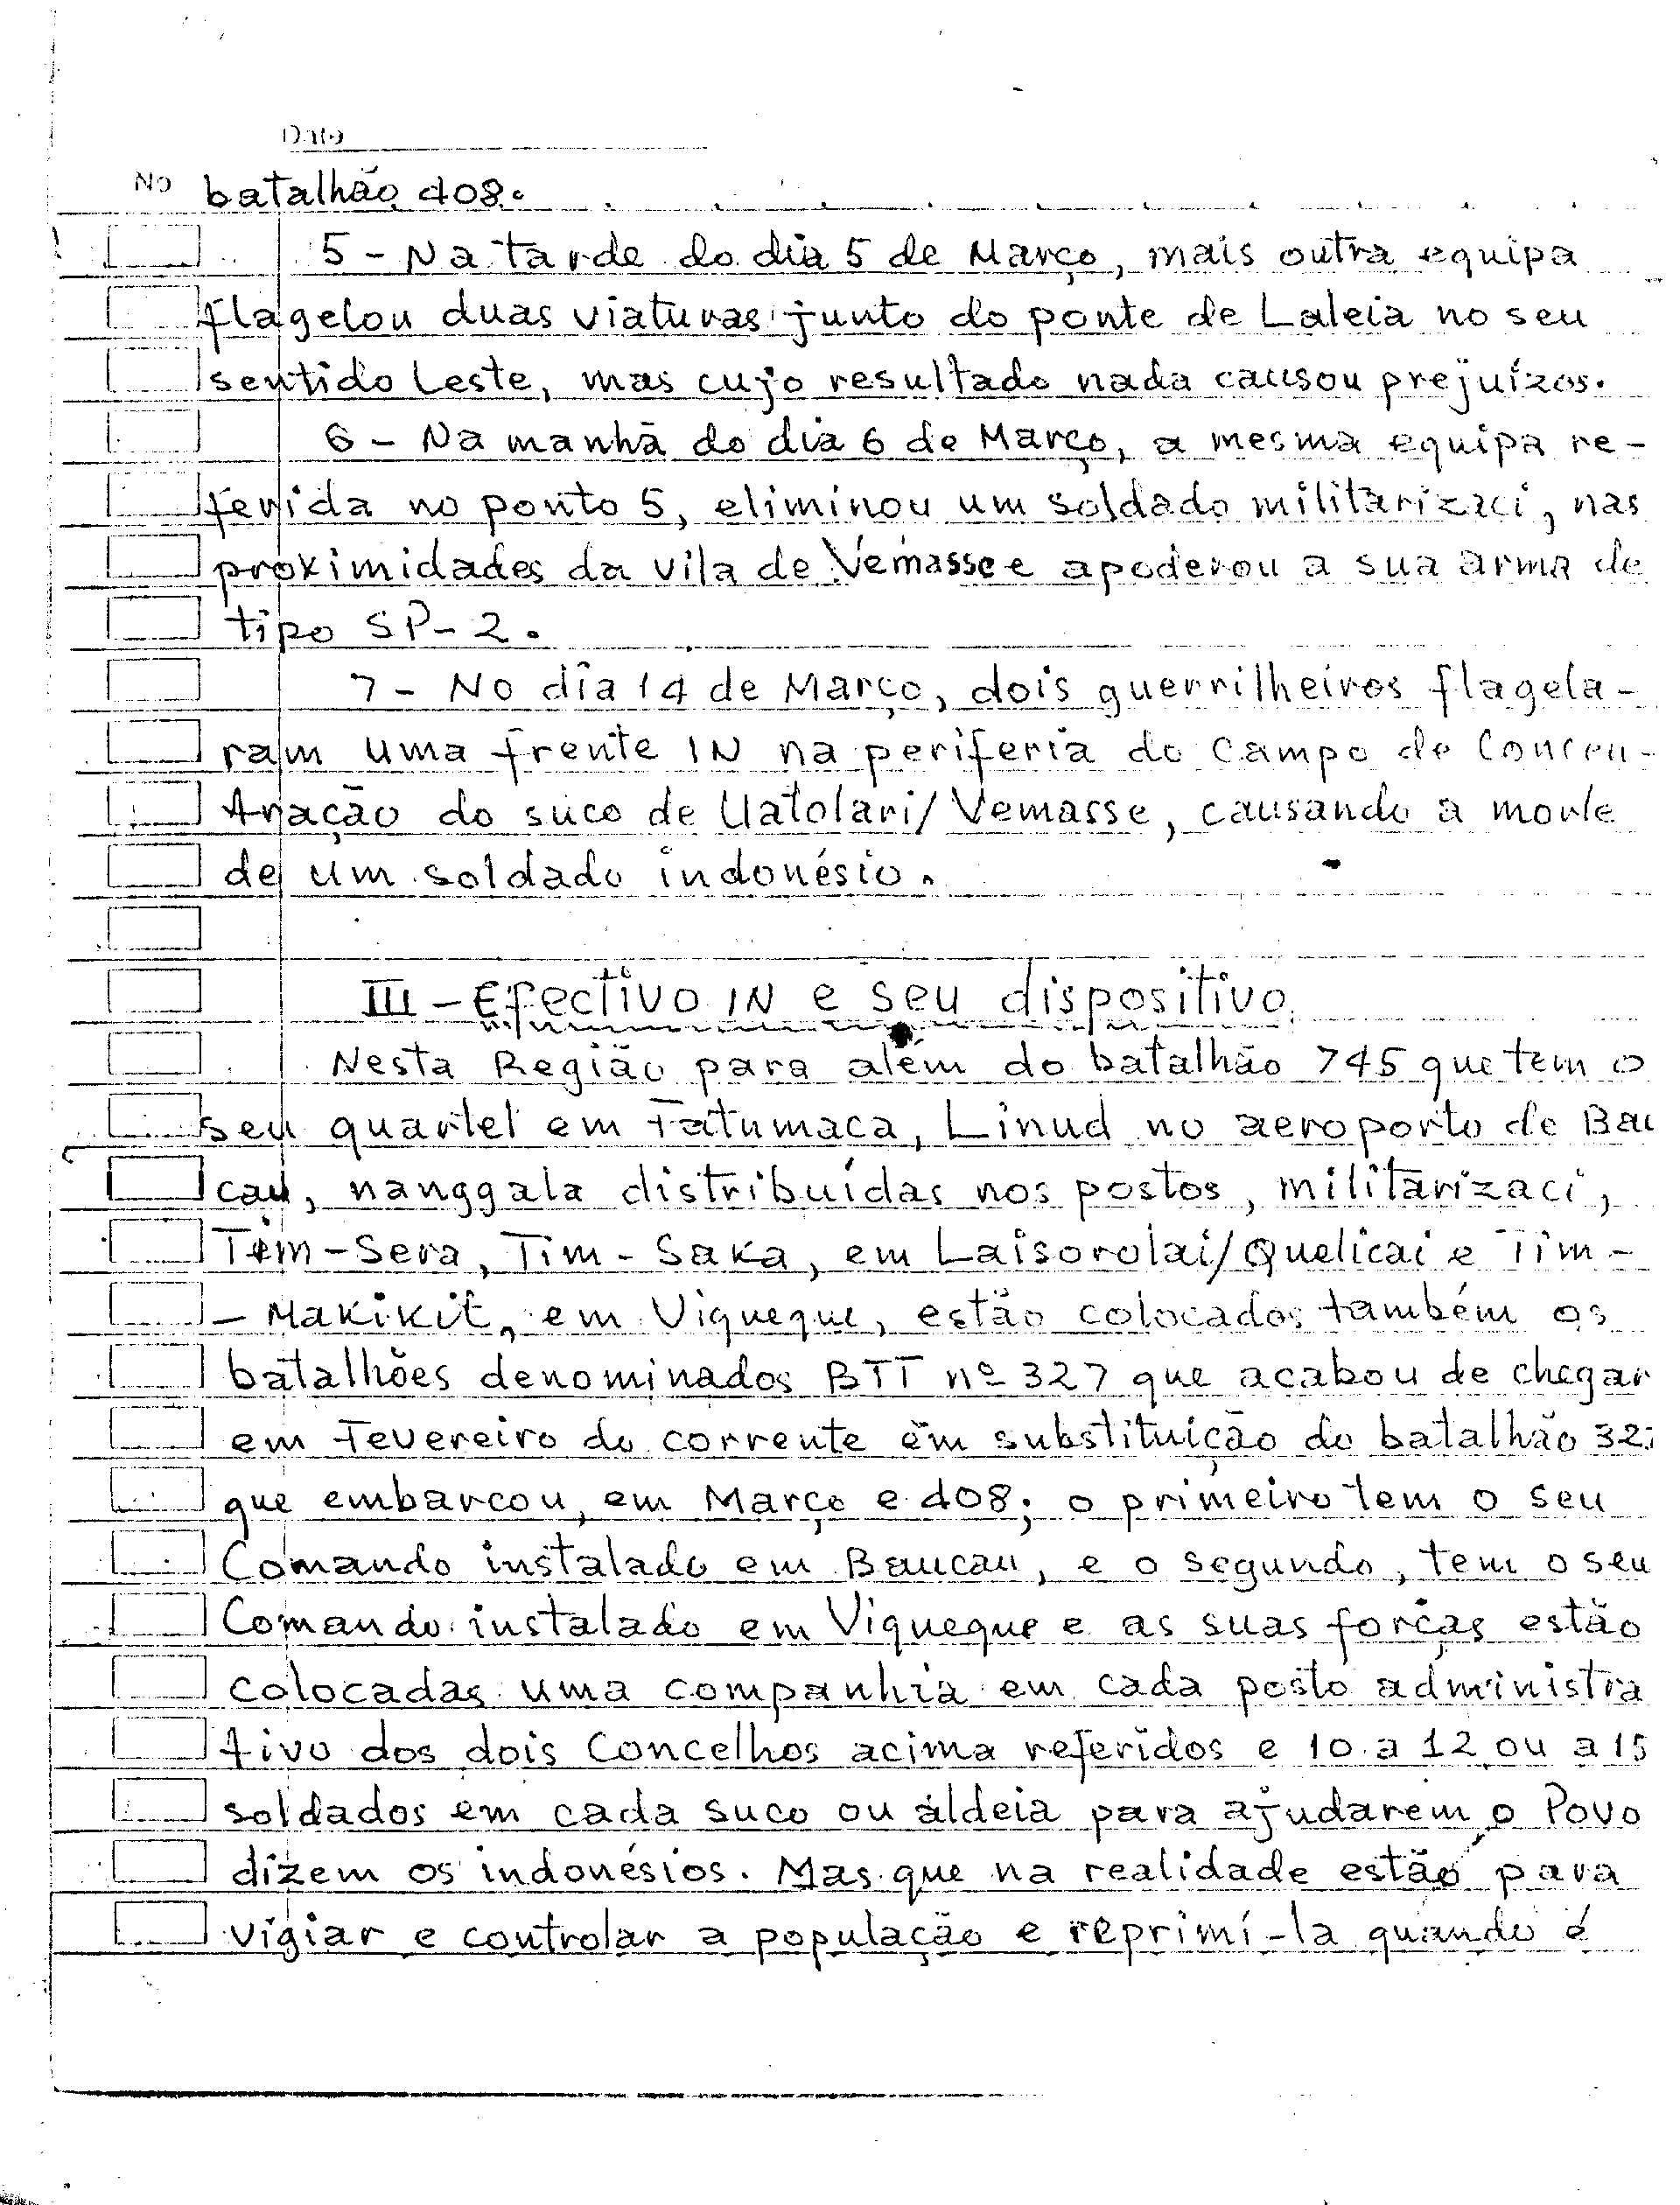 Date
No batalhão 408.
5 - Na tarde do dia 5 de Março, mais outra equipa
flagelou duas viaturas junto do ponte de Laleia no seu
sentido Leste, mas cujo resultado nada causou prejuízos.
6 - Na manhã do dia 6 de Março, a mesma equipa re-
ferida no ponto 5, eliminou um soldado militarizaci, nas
proximidades da vila de Vemasse e apoderou a sua arma de
tipo SP-2.
7 - No dia 14 de Março, dois guerrilheiros flagela-
ram uma frente IN na periferia do Campo de Concen-
tração do suco de Uatolari/Vemasse, causando a morte
de um soldado indonésio.
III - Efectivo IN e seu dispositivo
Nesta Região para além do batalhão 745 que tem o
seu quartel em Fatumaca, Linud no aeroporto de Bau
cau, nanggala distribuídas nos postos, militarizaci,
Tim-Sera, Tim-Saka, em Laisorolai/Quelicai e Tim-
- Makikit, em Viqueque, estão colocados também os
batalhões denominados BTT nº 327 que acabou de chegar
em Fevereiro do corrente em substituição do batalhão
que embarcou, em Março e 408; o primeiro tem o seu
Comando instalado em Baucau, e o segundo, tem o seu
Comando instalado em Viqueque e as suas forças estão
colocadas uma companhia em cada posto administra
tivo dos dois Concelhos acima referidos e 10 a 12 ou a 15
soldados em cada suco ou aldeia para ajudarem o Povo
dizem os indonésios. Mas que na realidade estão para
vigiar e controlar a população e reprimí-la quando é